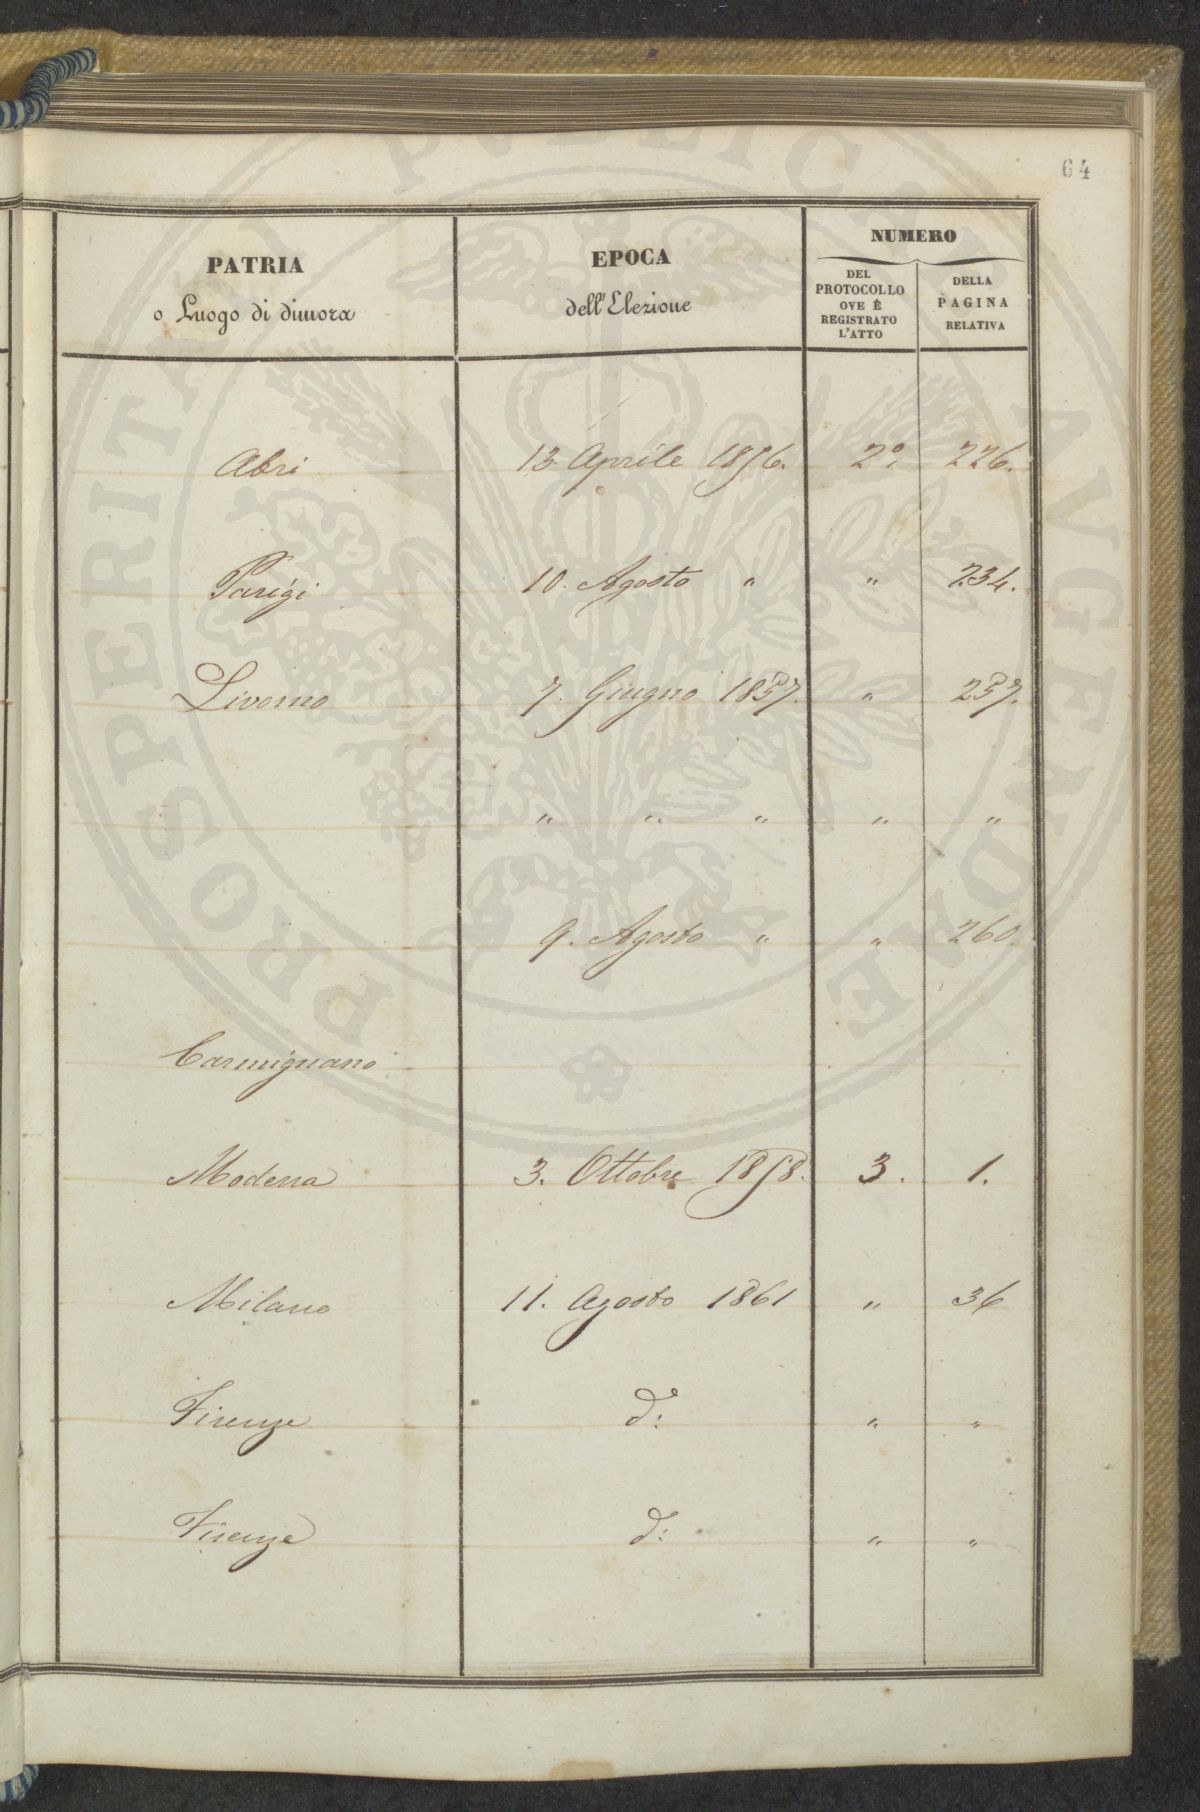 64
PATRIA
o Luogo di dimora
EPOCA
dell'Elezione
NUMERO
DEL
PROTOCOLLO
OVE È
REGISTRATO
L'ATTO
DELLA
PAGINA
RELATIVA
Abri 13. Aprile 1856. 2º. 226.
Parigi 10. Agosto " " 234.
Livorno 7. Giugno 1857. " 257.
" " " " "
9. Agosto " " 260.
Carmignano
Modena 3. Ottobre 1858. 3. 1.
Milano 11. Agosto 1861 " 36
Firenze d: " "
Firenze d: " "
PROSPERITATI PVBLICAE AVGENDAE